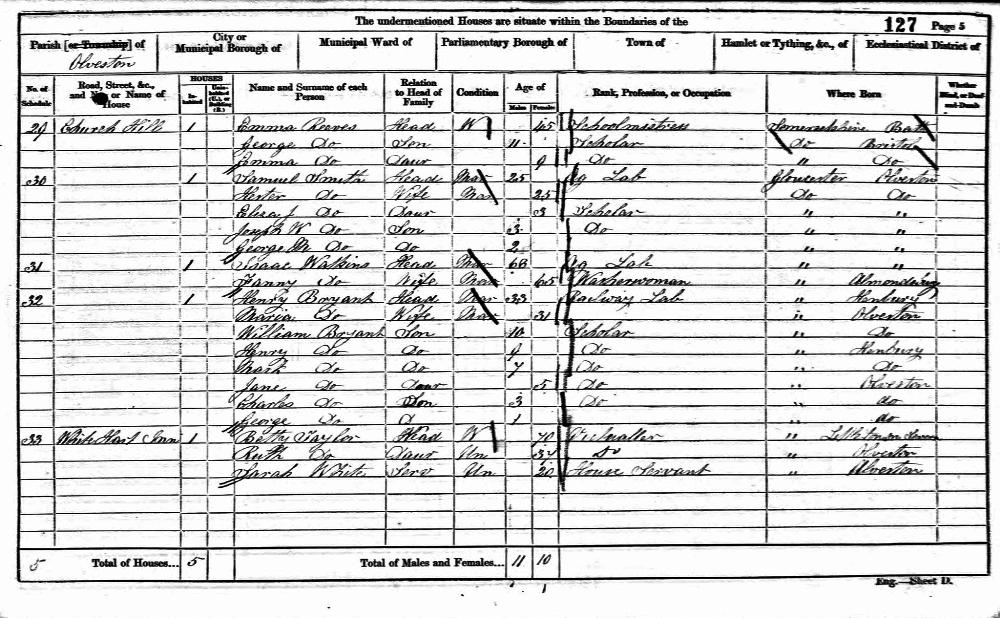 The undermentioned Houses are situate within the Boundaries of the 127 Page 5
Parish [or Township] of City or Municipal Borough of Municipal Ward of Parliamentary Borough of Town of Hamlet or Tything, &c., of Ecclesiastical District of
Olveston
No. of Schedule Road, Street, &c., and No. or Name of House HOUSES Inhabited Uninhabited (U.), or Building (B.) Name and Surname of each Person Relation to Head of Family Condition Age of Males Females Rank, Profession, or Occupation Where Born Whether Blind, or Deaf-and-Dumb
29 Church Hill 1 Emma Reeves Head W 45 Schoolmistress Somersetshire Bath
George Do Son 11 Scholar Do Bristol
Emma Do Daur 9 Do " Do
30 1 Samuel Smith Head Mar 25 Ag Lab Gloucester Olveston
Hester Do Wife Mar 25 Do Do
Eliza J Do Daur 3 Scholar " "
Joseph W Do Son 3 Do " "
George Do Do 2 " "
31 1 Isaac Watkins Head Mar 68 Ag Lab " "
Fanny Do Wife Mar 65 Washerwoman " Almondsbury
32 1 Henry Bryant Head Mar 33 Railway Lab " Henbury
Maria Do Wife Mar 31 " Olveston
William Bryant Son 10 Scholar " Do
Henry Do Do 9 Do " Henbury
Mark Do Do 7 Do " Do
Jane Do Daur 5 Do " Olveston
Charles Do Son 3 Do " do
George Do D 1 " do
33 White Hart Inn 1 Betty Taylor Head W 70 Victualler "
Ruth Do Daur Un 34 Do " Olveston
Sarah White Serv Un 20 House Servant " Olveston
5 Total of Houses... 5 Total of Males and Females... 11 10
Eng.—Sheet D.